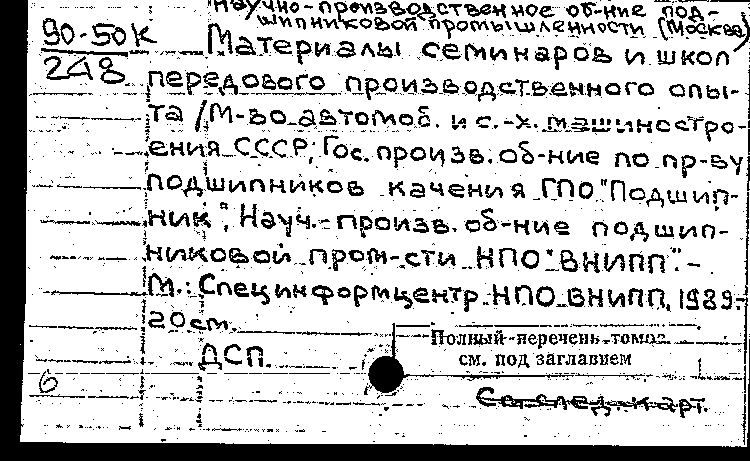 Научно-производственное об-ние под-
шипниковой промышленности (Москва)
90-50к
248
Материалы семинаров и школ
передового производственного опы-
та / М-во автомоб. и с.-х. машиностро-
ения СССР; Гос. произв. об-ние по пр-ву
подшипников качения ГПО "Подшип-
ник"; Науч.-произв. об-ние подшип-
никовой пром-сти НПО "ВНИПП". -
М.: Специнформцентр НПО ВНИПП, 1989-
20 см.
ДСП.
Полный перечень томов
см. под заглавием
6
См. след. карт.